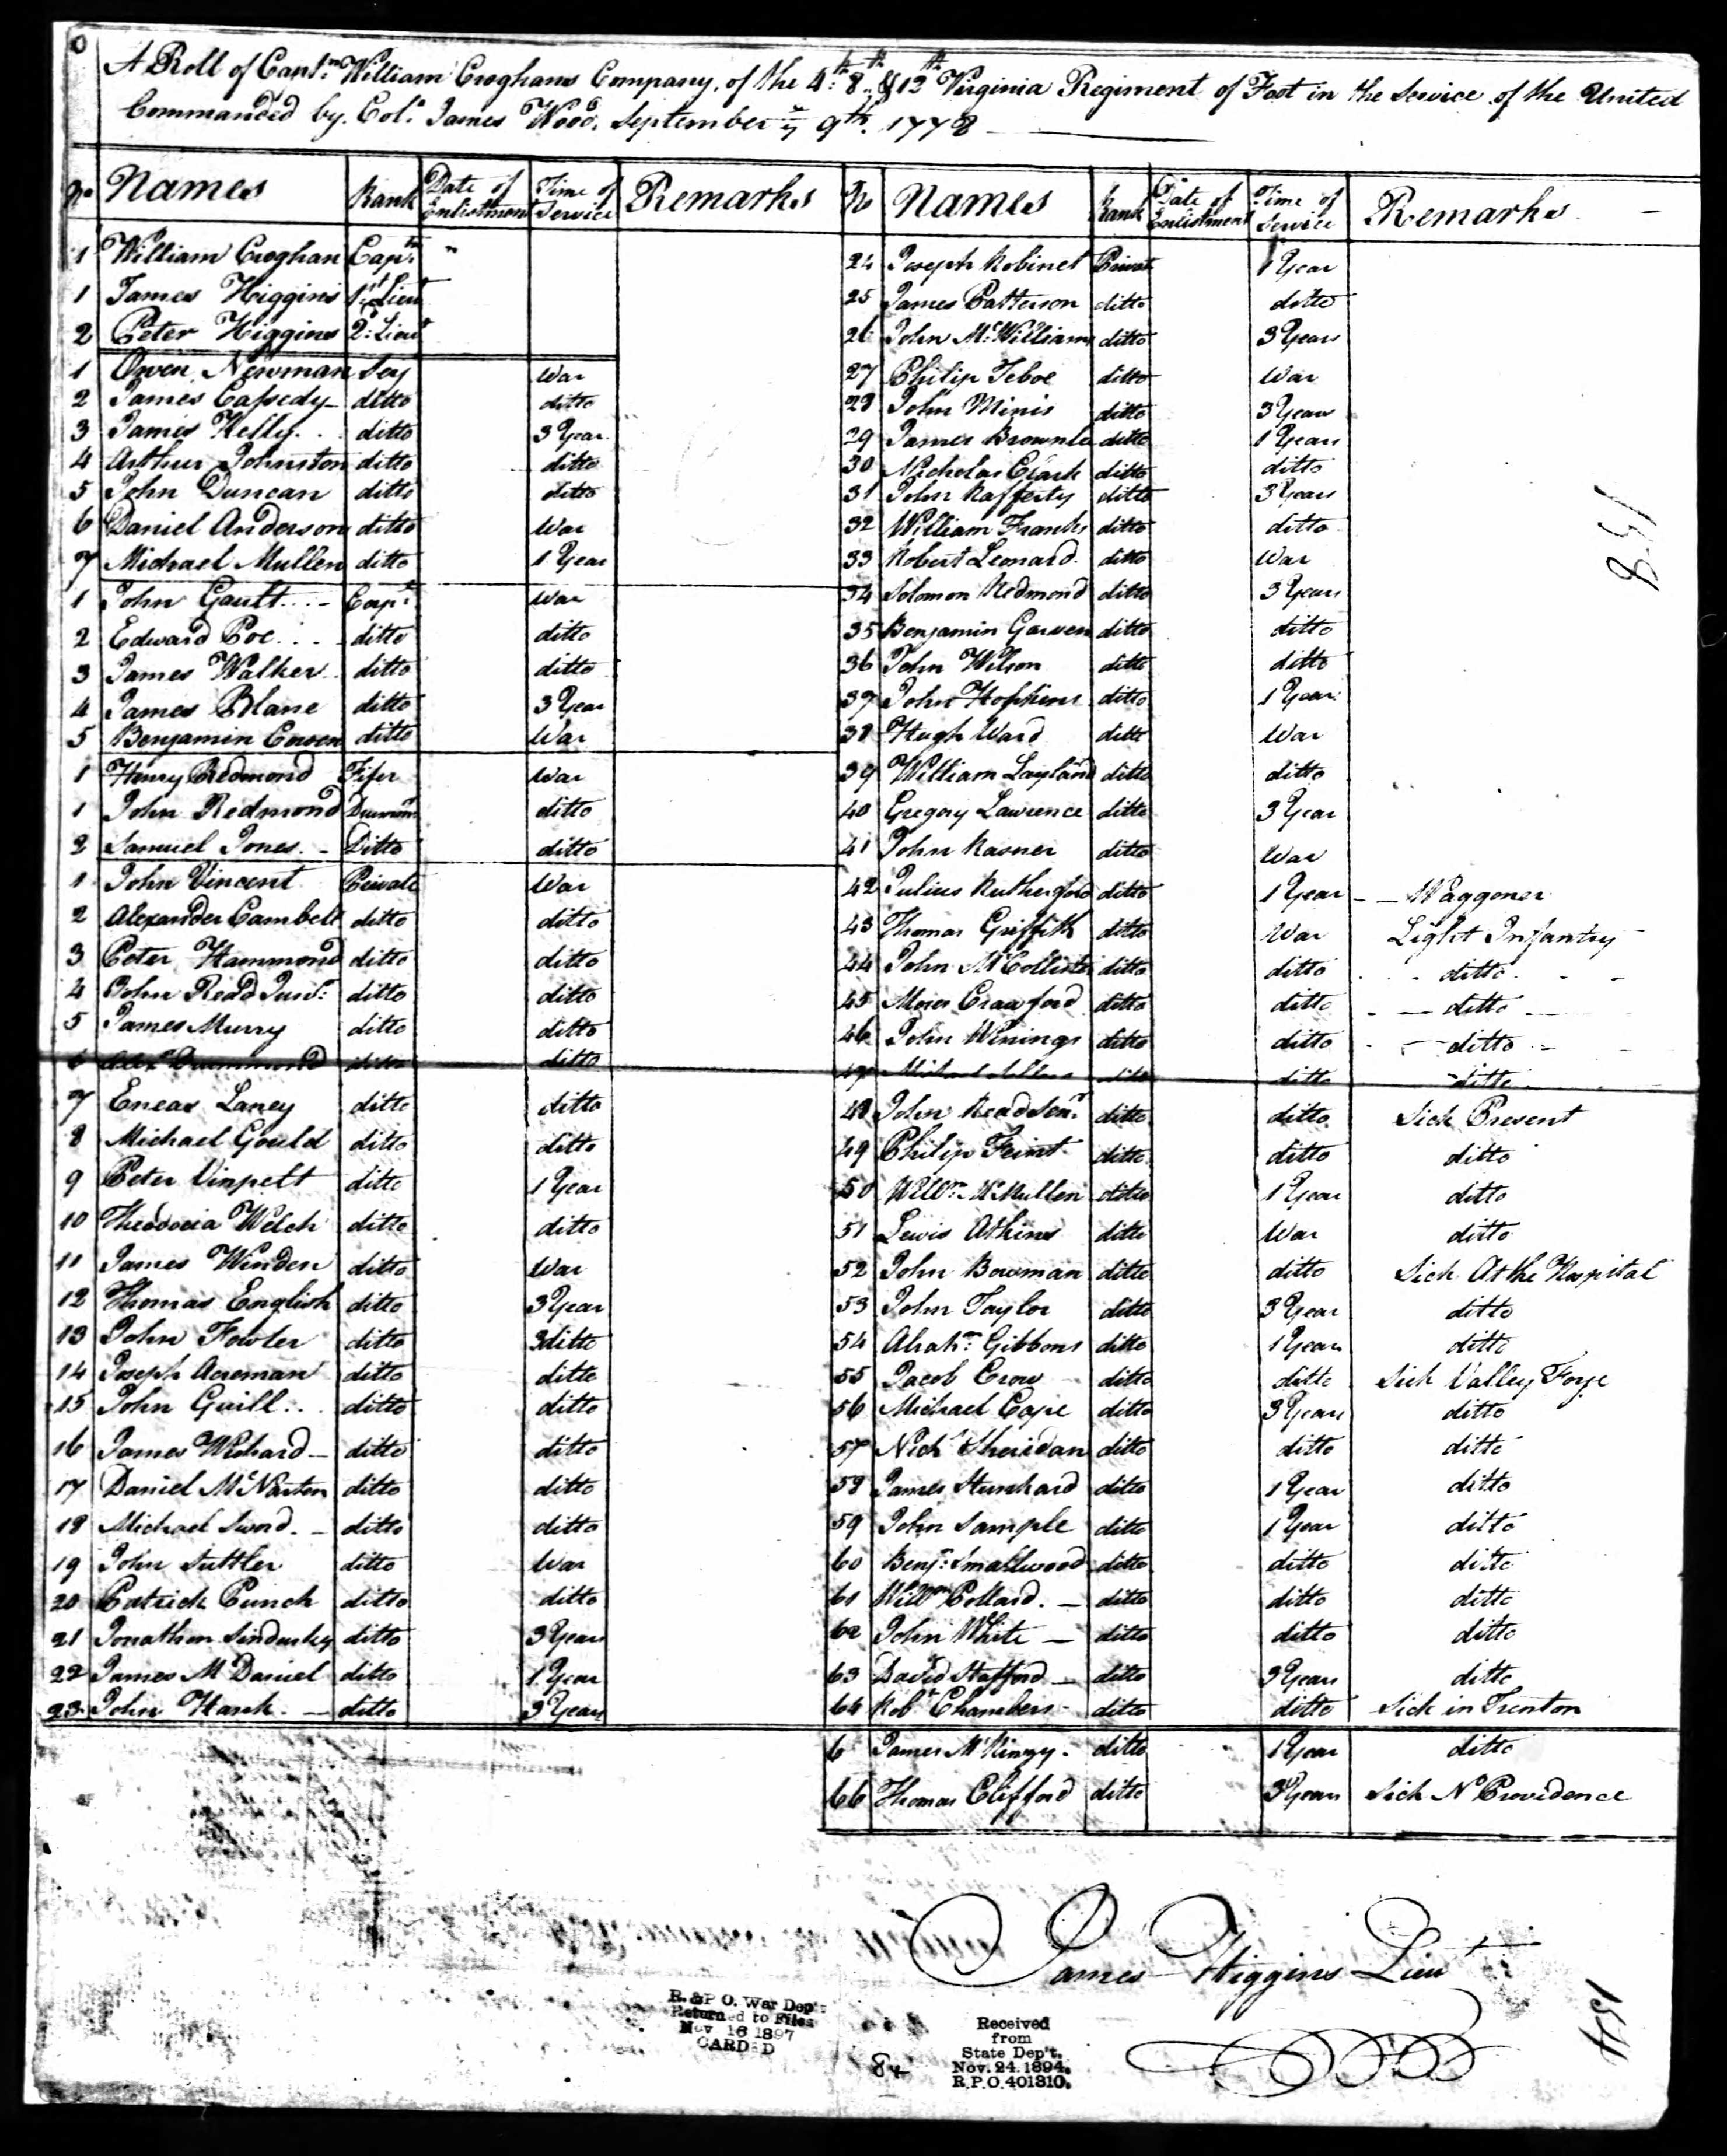 A Roll of Capt:n William Croghans Company, of the 4:th 8th & 12th Virginia Regiment of Foot in the Service of the United
Commanded by Col:o James Wood. September ye 9th 1778
No Names Rank Date of Enlistment Time of Service Remarks
1 William Croghan Capn: "
1 James Higgins 1:st Lieut
2 Peter Higgins 2:d Lieut
1 Owen Newman Serj War
2 James Cassedy ditto ditto
3 James Kelly ditto 3 Year
4 Arthur Johnston ditto ditto
5 John Duncan ditto ditto
6 Daniel Anderson ditto War
7 Michael Mullen ditto 1 Year
1 John Gault Corpl: War
2 Edward Poe ditto ditto
3 James Walker ditto ditto
4 James Blane ditto 3 Year
5 Benjamin Cowen ditto War
1 Henry Redmond Fifer War
1 John Redmond Drumm ditto
2 Samuel Jones Ditto ditto
1 John Vincent Private War
2 Alexander Cambell ditto ditto
3 Peter Hammond ditto ditto
4 John Read Junr: ditto ditto
5 James Murry ditto ditto
6 Alexr Drummond ditto ditto
7 Eneas Laney ditto ditto
8 Michael Gould ditto ditto
9 Peter Vinpelt ditto 1 Year
10 Theodocia Welch ditto ditto
11 James Winden ditto War
12 Thomas English ditto 3 Year
13 John Fowler ditto 3 ditto
14 Joseph Acreman ditto ditto
15 John Guill ditto ditto
16 James Wichard ditto ditto
17 Daniel McNarton ditto ditto
18 Michael Sword ditto ditto
19 John Suttler ditto War
20 Patrick Punch ditto ditto
21 Jonathan ditto 3 Years
22 James McDaniel ditto 1 Year
23 John Hank ditto 3 Years
No Names Rank Date of Enlistment Time of Service Remarks
24 Joseph Robinet Privat 1 Year
25 James Patterson ditto ditto
26 John Mc:William ditto 3 Years
27 Philip Teboe ditto War
28 John Minis ditto 3 Years
29 James Brownle ditto 1 Years
30 Nicholas Clark ditto ditto
31 John Rafferty ditto 3 Years
32 William Franks ditto ditto
33 Robert Leonard ditto War
34 Solomon Redmond ditto 3 Years
35 Benjamin Garven ditto ditto
36 John Wilson ditto ditto
37 John Hopkins ditto 1 Year
38 Hugh Ward ditto War
39 William Layland ditto ditto
40 Gregory Lawrence ditto 3 Year
41 John Rasner ditto War
42 Julius Rutherford ditto 1 Year Waggoner
43 Thomas Griffith ditto War Light Infantry
44 John McCollister ditto ditto ditto
45 Moses Crawford ditto ditto ditto
46 John Winings ditto ditto ditto
47 Michael ditto ditto ditto
48 John Read Senr: ditto ditto Sick Present
49 Philip Feint ditto ditto ditto
50 Willm: McMullen ditto 1 Year ditto
51 Lewis Atkins ditto War ditto
52 John Bowman ditto ditto Sick At the Hospital
53 John Taylor ditto 3 Year ditto
54 Abrahm: Gibbons ditto 1 Year ditto
55 Jacob Crow ditto ditto Sick Valley Forge
56 Michael Cape ditto 3 Years ditto
57 Nichs Sheridan ditto ditto ditto
58 James Stunkard ditto 1 Year ditto
59 John Sample ditto 1 Year ditto
60 Benj: Smallwood ditto ditto ditto
61 Willm Pollard ditto ditto ditto
62 John White ditto ditto ditto
63 David Stafford ditto 3 Years ditto
64 Robt Chambers ditto ditto Sick in Trenton
6 James McKinzy ditto 1 Year ditto
66 Thomas Clifford ditto 3 Years Sick No Providence
James Higgins Lieut
R. & P. O. War Dep't.
Returned to Files
Nov 16 1897
CARDED
84
Received
from
State Dep't.
Nov. 24. 1894.
R.P.O. 401310.
158
154